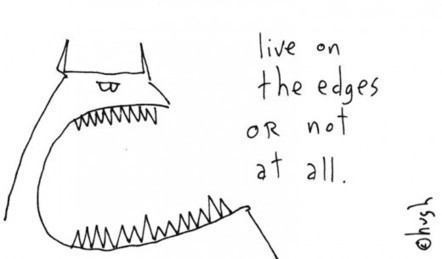 live on
the edges
OR not
at all.
©hugh